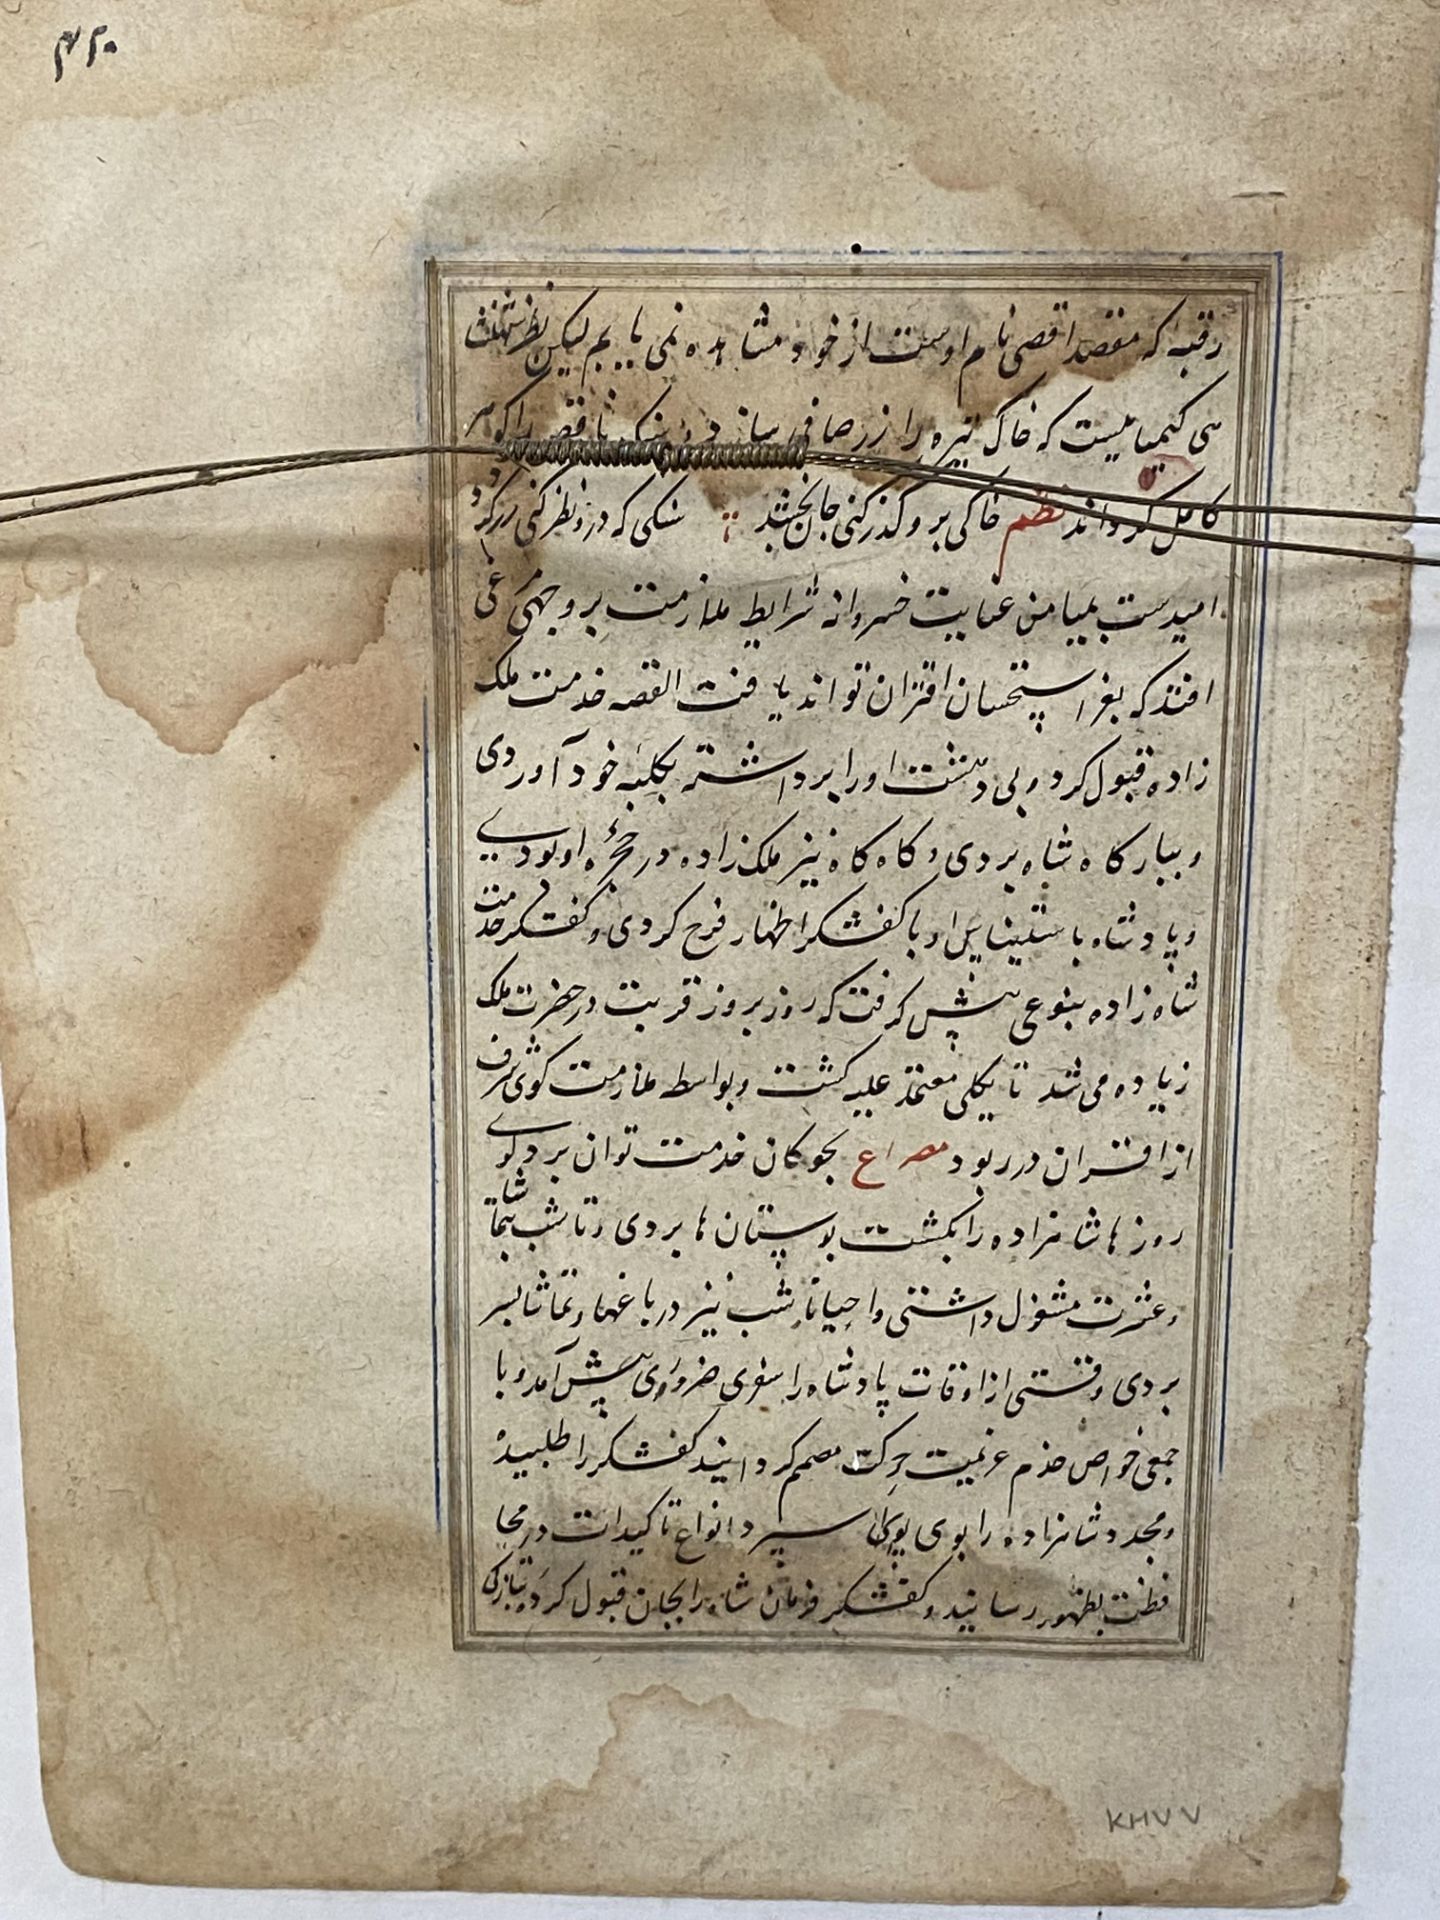 ۴۲۰
رقبه که مقصد اقصی نام اوست از خود مشاهده نمی یابم لیکن نظر شهنشا
هی کیمیاییست که خاک تیره را زر صافی سازد و سنک ناقص را کوهر
کامل کرداند نظم خاکی برو کذر کنی جان بخشد سنکی که درو نظر کنی زر کردد
امیدست بمیامن عنایت خسروانه شرایط ملازمت بر وجهی مرعی
افتد که بعز استحسان اقتران تواند یافت القصه خدمت ملک
زاده قبول کرد و بی دهشت او را برداشته بکلبه خود آوردی
و ببارکاه شاه بردی و کاه کاه نیز ملک زاده در حجره او بودی
و پادشاه باستیناس او با کفشکر اظهار فرح کردی و کفشکر خدمت
شاه زاده بنوعی پیش کرفت که روز بروز قربت در حضرت ملک
زیاده می شد تا بکلی معتمد علیه کشت و بواسطه ملازمت کوی شرف
از اقران در ربود مصراع بچوکان خدمت توان برد کوی
روزها شاهزاده را بکشت بوستان ها بردی و تا شب بتماشا
و عشرت مشغول داشتی و احیانا شب نیز در باغها و تماشا بسر
بردی وقتی از اوقات پادشاه را سفری ضروری پیش آمد و با
جمعی خواص خدم عزیمت حرکت مصمم کردانید کفشکر را طلبیده
و مجدد شاهزاده را بوی سپرد انواع تاکیدات در محا
فظت بظهور رسانید و کفشکر فرمان شاه را بجان قبول کرد
KHVV